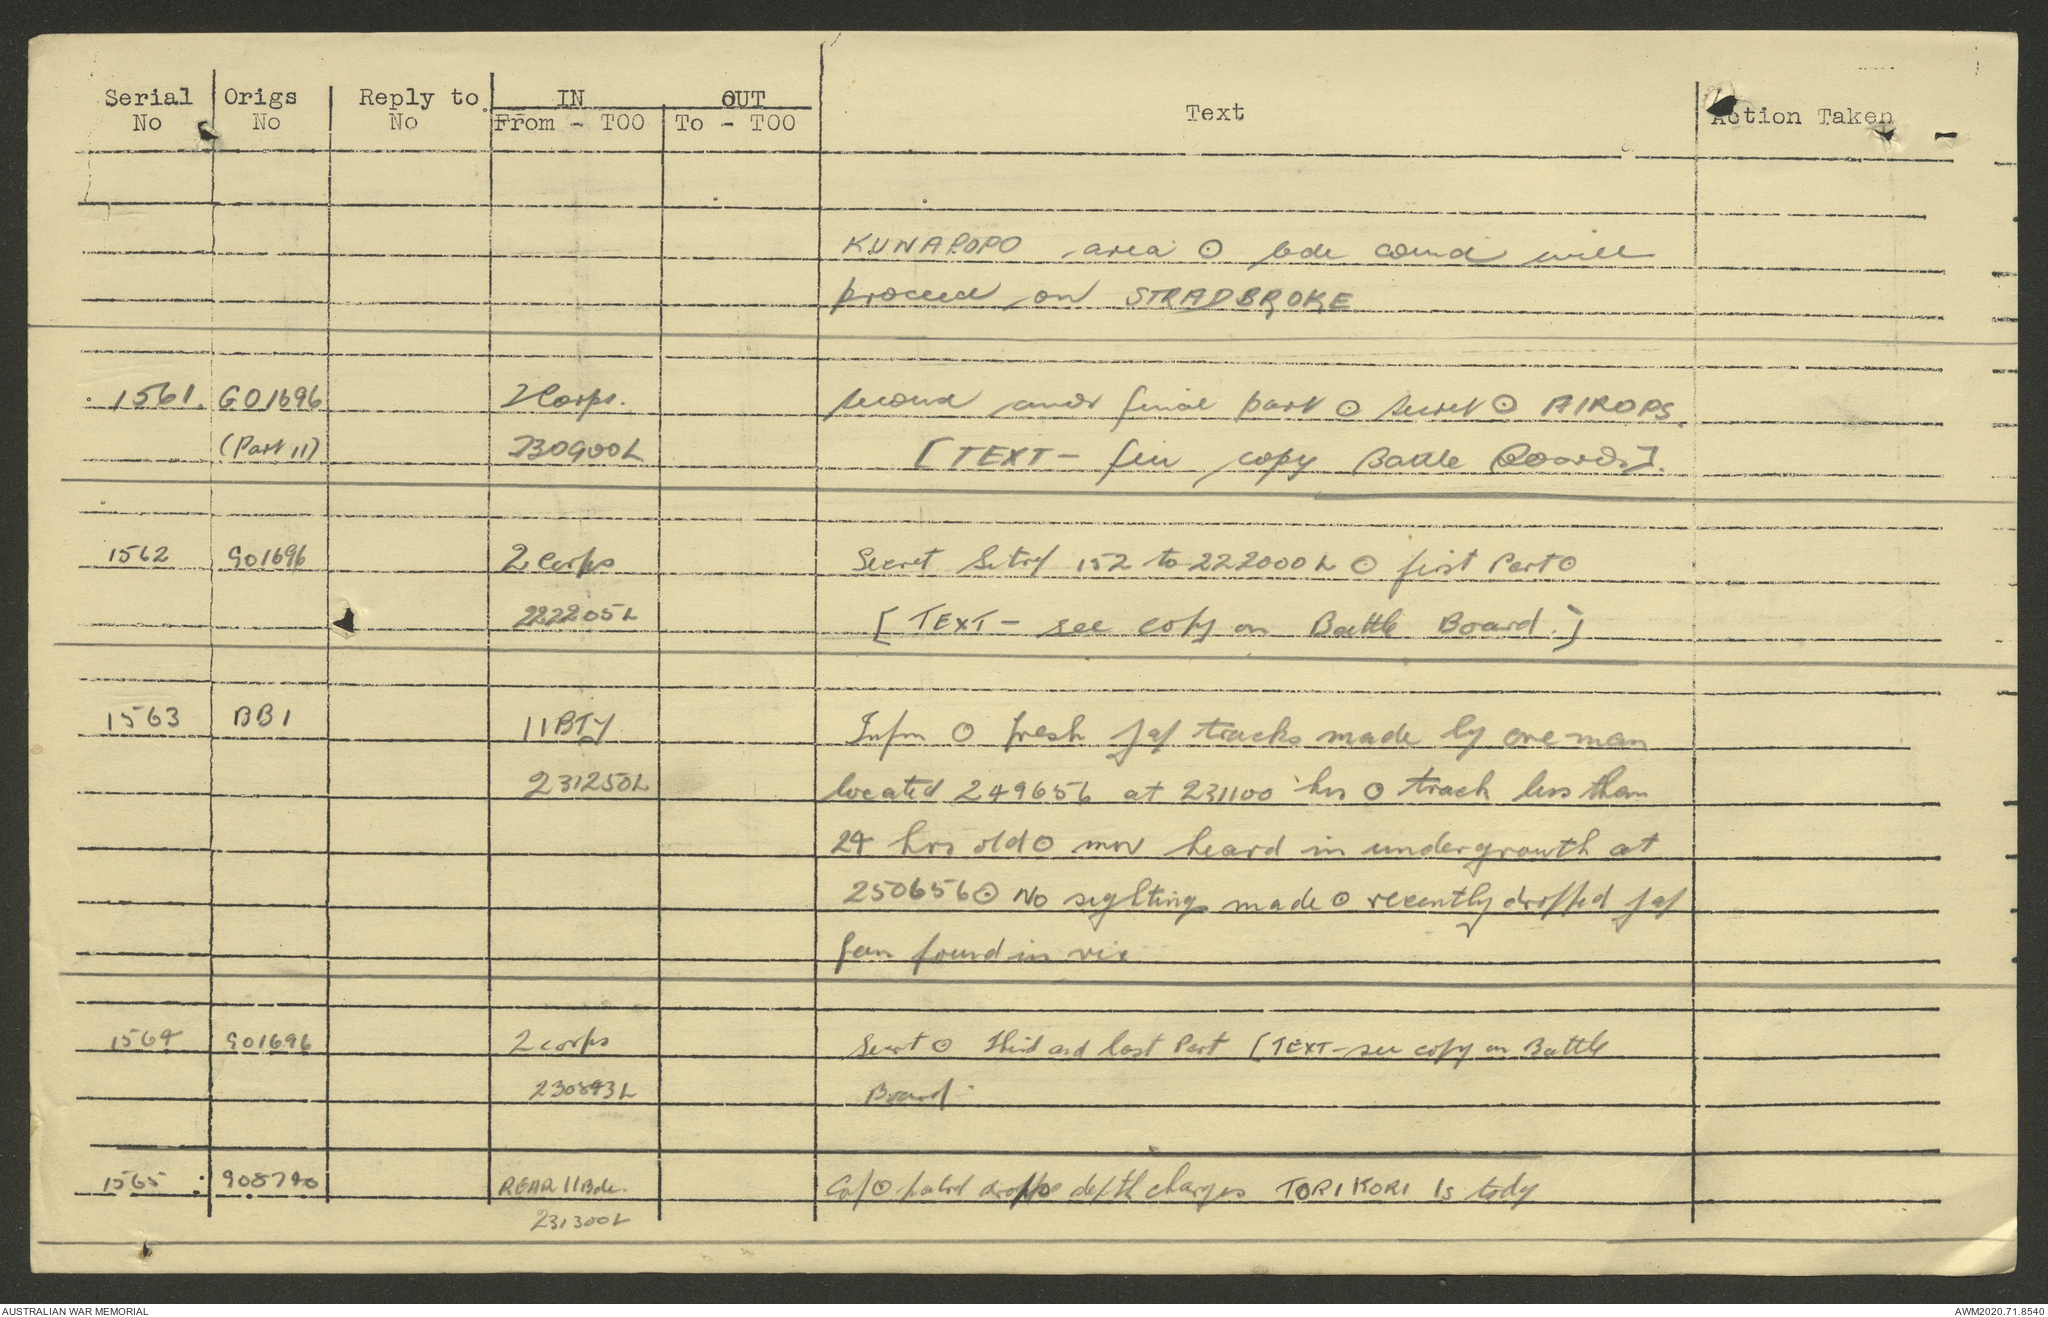 Serial No
Origs No
Reply to No
IN
From - TOO
OUT
To - TOO
Text
Action Taken
KUNAPOPO area ⊙ bde comd will
proceed on STRADBROKE
1561. GO1696 2 Corps. second and final part ⊙ secret ⊙ AIROPS
(Part 11) 230900L [TEXT - copy Battle Board].
1562 GO1696 2 Corps Secret Sitrep 152 to 222000L ⊙ first Part ⊙
222205L [TEXT - see copy on Battle Board.]
1563 BB1 11 BTY Infm ⊙ fresh jap tracks made by one man
231250L located 249656 at 231100 hrs ⊙ track less than
24 hrs old ⊙ mov heard in undergrowth at
250656 ⊙ No sightings made ⊙ recently dropped jap
fan found in vic
1564 GO1696 2 corps Secret ⊙ Third and last Part [TEXT - see copy on Battle
230843L Board
1565 REAR 11 Bde. patrol depth charges TORIKORI Is tody
231300L
AUSTRALIAN WAR MEMORIAL
AWM2020.71.8540